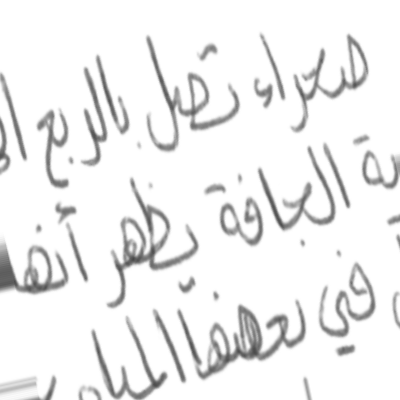 صحراء تصل بالربع
الجافة يظهر أنها
في بعضها المياه